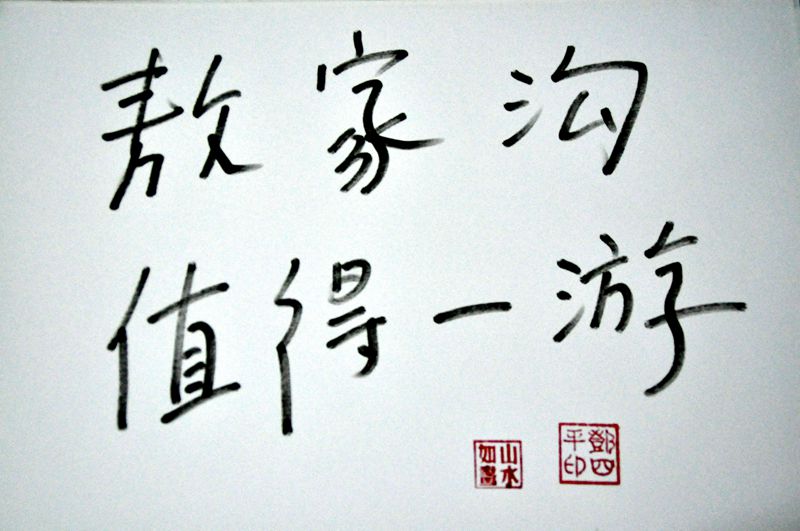 敖家沟
值得一游
山水如画
邓四平印